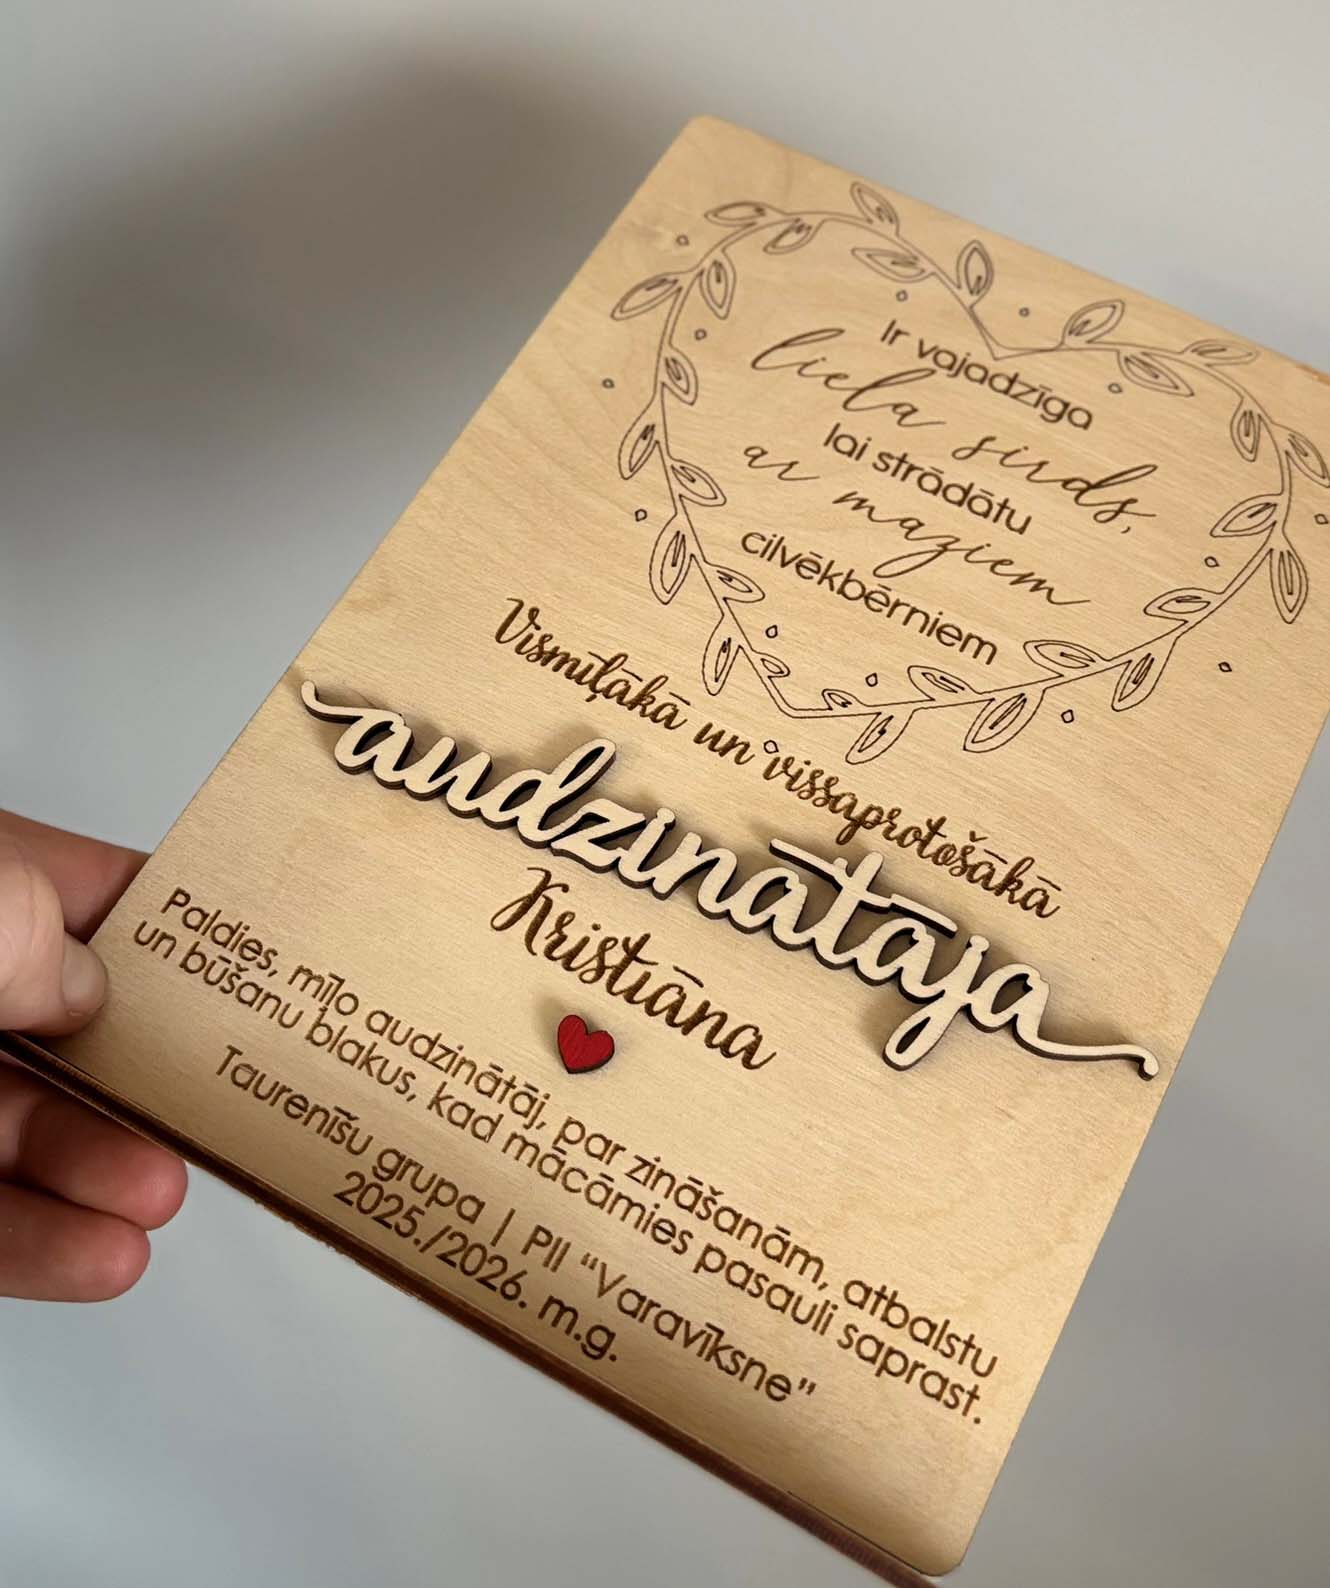 Ir vajadzīga
liela sirds,
lai strādātu
ar maziem
cilvēkbērniem
Vismīļākā un vissaprotošākā
audzinātāja
Kristiāna
Paldies, mīļo audzinātāj, par zināšanām, atbalstu
un būšanu blakus, kad mācāmies pasauli saprast.
Taurenīšu grupa | PII “Varavīksne”
2025./2026. m.g.